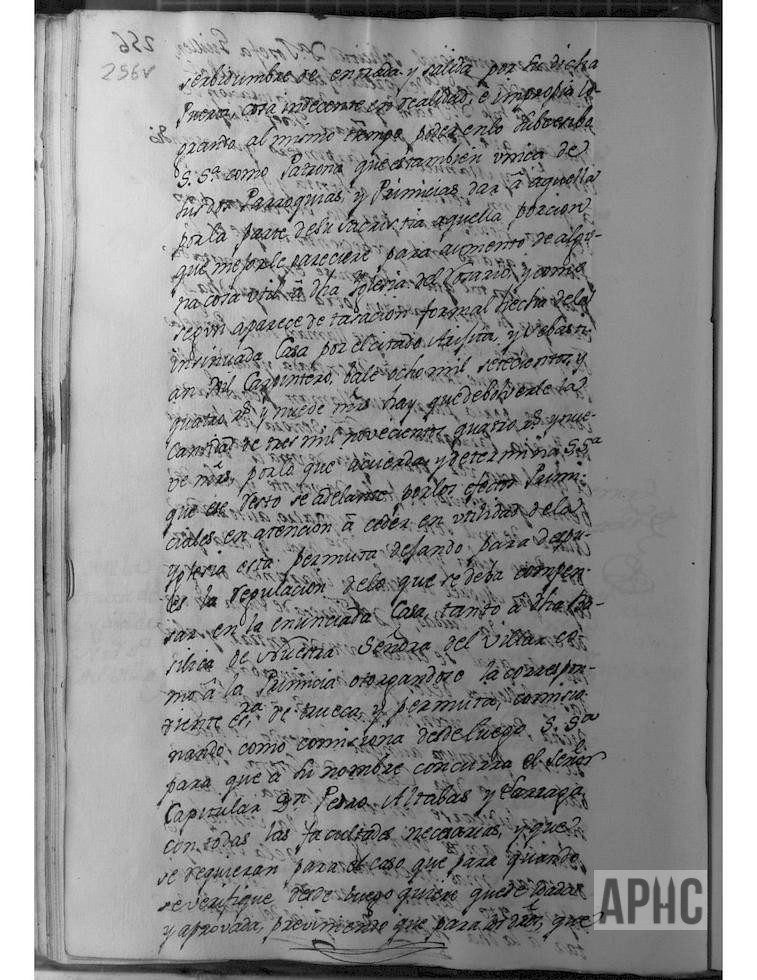 256
256v
serbidumbre de entrada y salida por su dicha
Puerta cosa indecente en realidad, è impropia lo-
grando al mismo tiempo poder en lo subcesibo
S. Sª como Patrona que es tambien unica de
sus dos Parroquias, y Primicias dar â aquella
por la parte de su sacristia aquella porcion
que mejor le pareciere para aumento de algu-
na cosa util â dha Iglesia del Rosario, y como
segun aparece de tasacion formal hecha de la
insinuada Casa por el citado Arista, y Sebasti-
an Gil Carpintero, bale ocho mil setecientos y
quatro rs y nuebe mrs hay que debolverle la
Cantidad de tres mil novecientos quatro rs y nue-
ve mrs, por lo que acuerda y determina S. Sª
que el resto se adelante por los efectos Primi-
ciales en atencion â ceder en utilidad de la
Iglesia esta permuta dejando para despu-
es la regulacion de lo que se deba compen-
sar en la enunciada Casa, tanto a dha Ba-
silica de Nuestra Señora del Villar co-
mo â la Primicia otorgandose la correspon-
diente esra de trueca, y permuta, comisio-
nando como comisiona desde luego S. Sª
para que a su nombre concurra el Señor
Capitular Dn Pedro Altabas y Larraga
con todas las facultades necesarias, y que
se requieran para el caso que para quando
se verifique desde luego quiere quede loada
y aprovada, previniendo que para
APHC